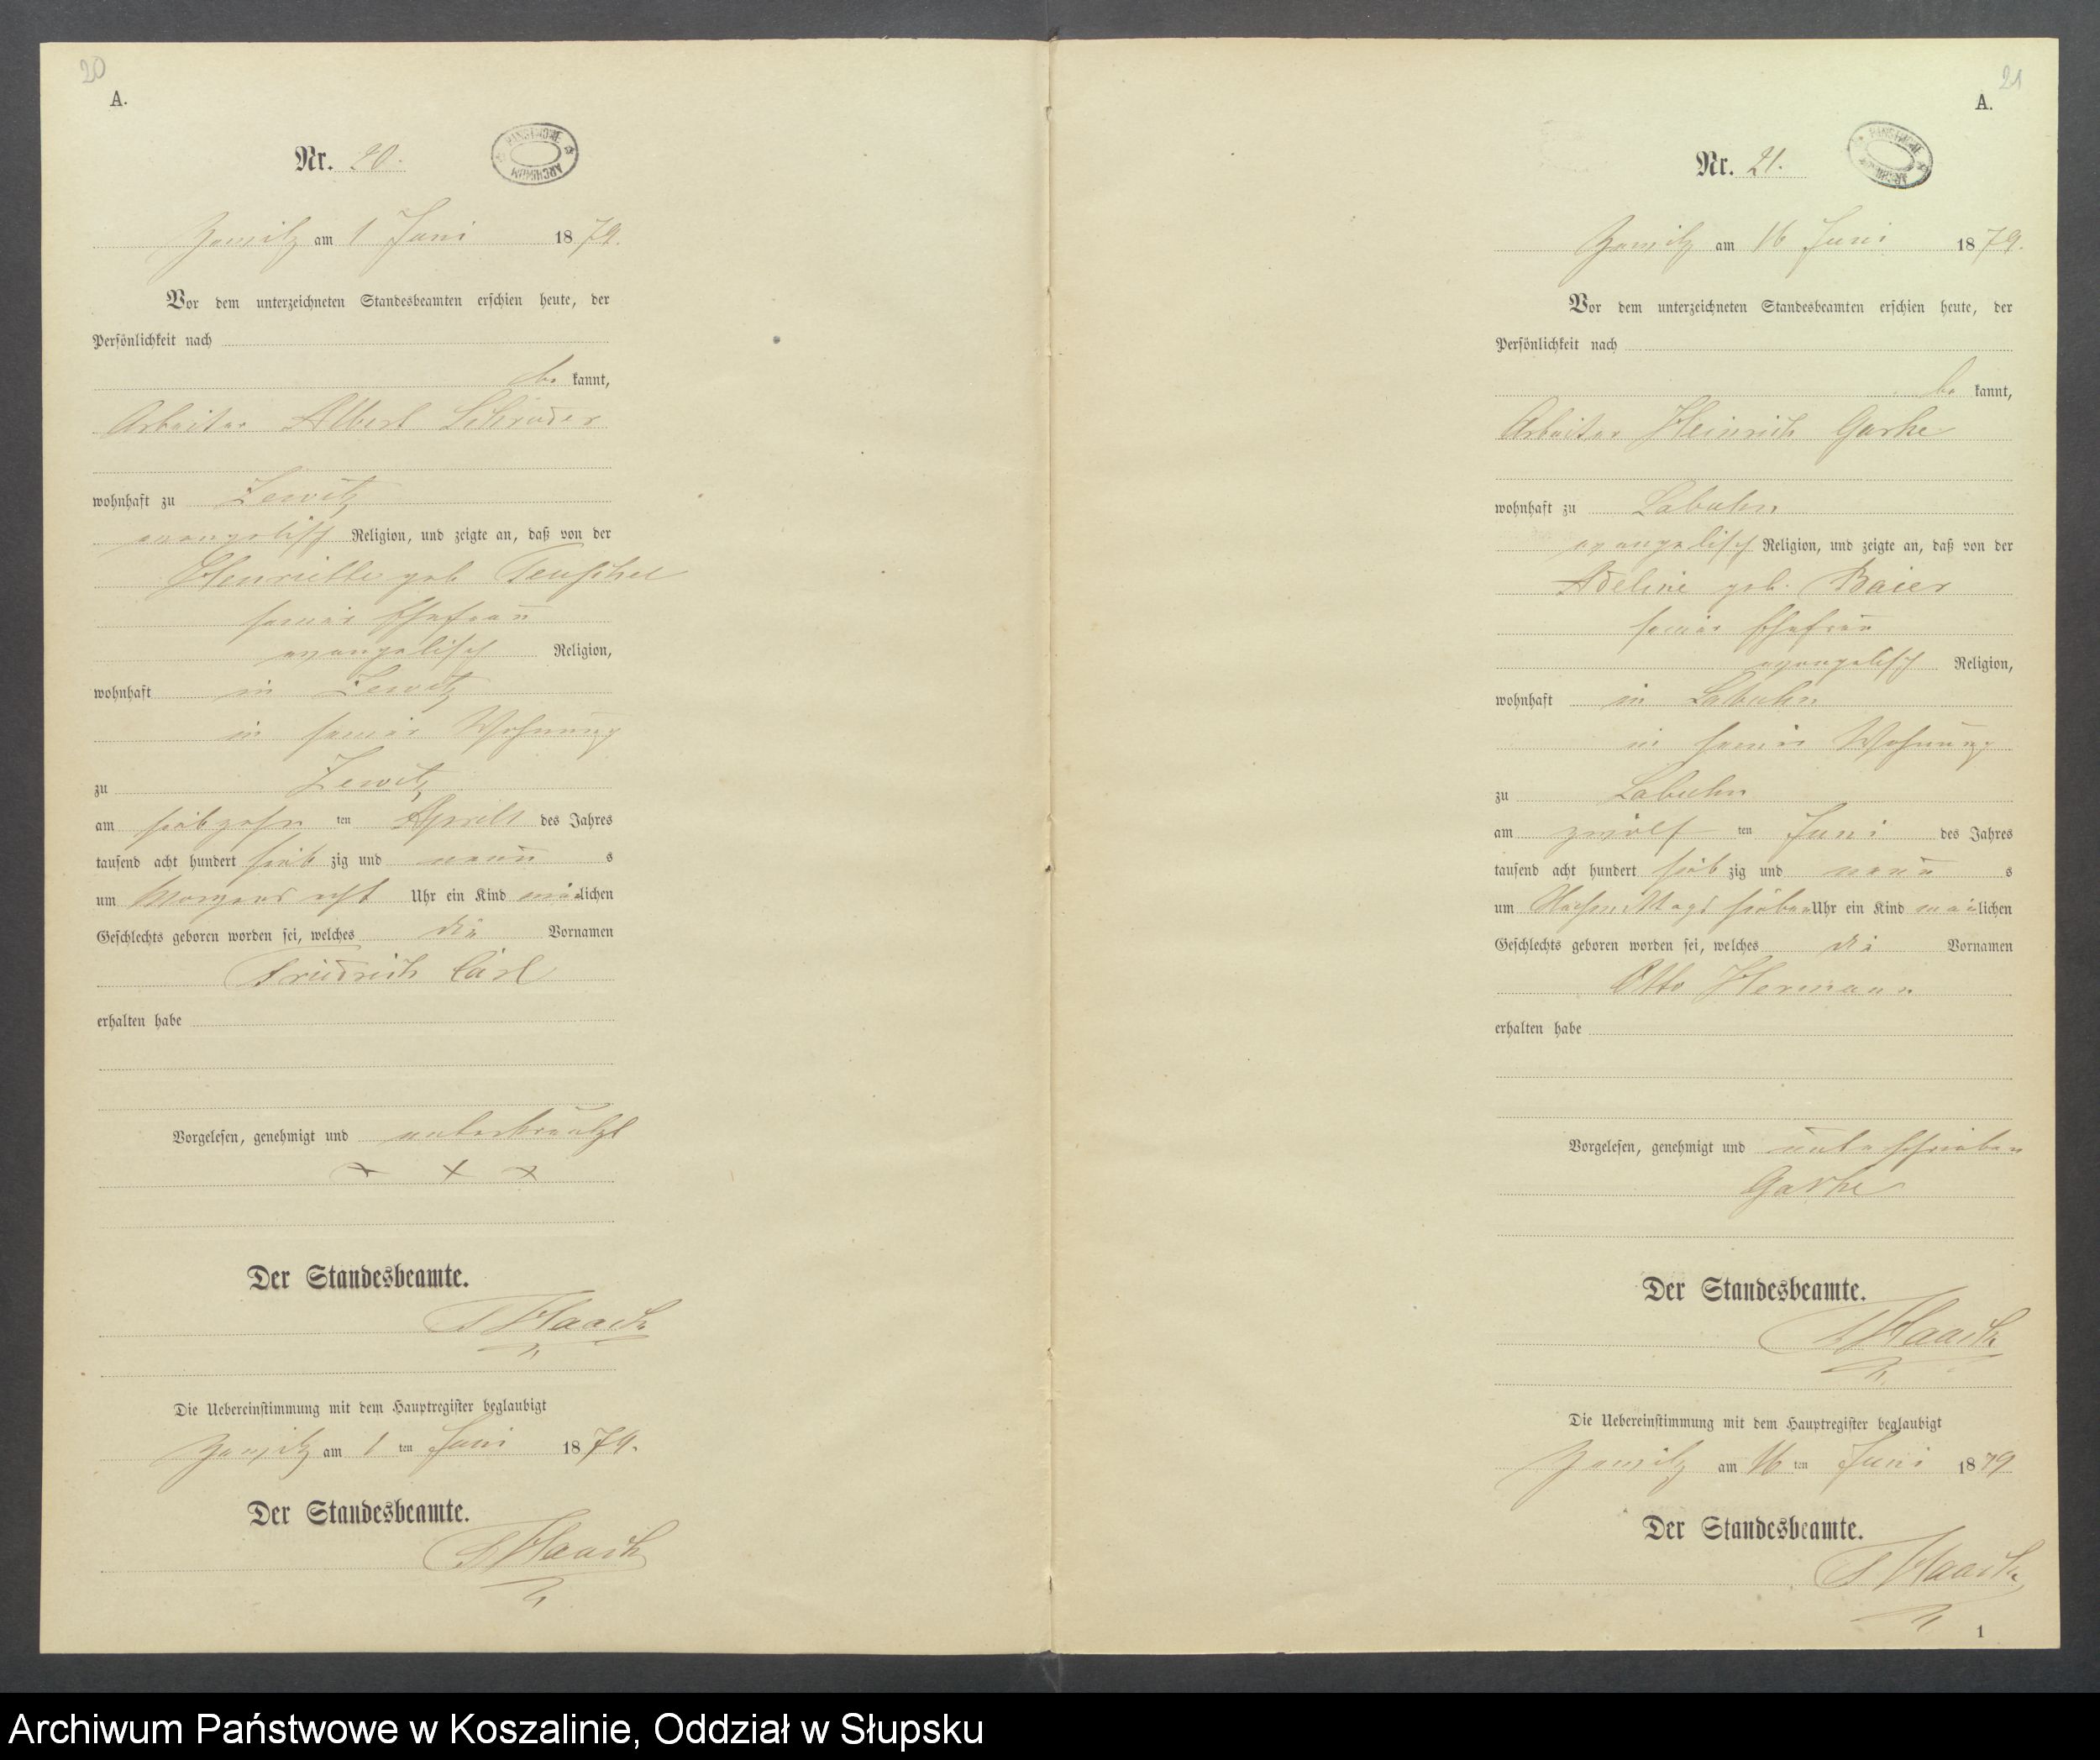 20
A.
Nr. 20.
PAŃSTWOWE ARCHIWUM
am 1 Juni 1879.
Vor dem unterzeichneten Standesbeamten erschien heute, der
Persönlichkeit nach
be kannt,
Arbeiter Albert Schröder
wohnhaft zu Zewitz
evangelisch Religion, und zeigte an, daß von der
Henriette geb. Teuschel
seiner Ehefrau
evangelisch Religion,
wohnhaft in Zewitz
in seiner Wohnung
zu Zewitz
am siebzehn ten Aprill des Jahres
tausend acht hundert sieb zig und neun s
um Morgens acht Uhr ein Kind männlichen
Geschlechts geboren worden sei, welches die Vornamen
Friedrich Carl
erhalten habe
Vorgelesen, genehmigt und unterkreutzt
+ + +
Der Standesbeamte.
Haack
Die Uebereinstimmung mit dem Hauptregister beglaubigt
am 1 ten Juni 1879.
Der Standesbeamte.
Haack
21
A.
Nr. 21.
PAŃSTWOWE ARCHIWUM
am 16 Juni 1879.
Vor dem unterzeichneten Standesbeamten erschien heute, der
Persönlichkeit nach
be kannt,
Arbeiter Heinrich Garke
wohnhaft zu Labuhn
evangelisch Religion, und zeigte an, daß von der
Adeline geb. Baier
seiner Ehefrau
evangelisch Religion,
wohnhaft in Labuhn
in seiner Wohnung
zu Labuhn
am zwölf ten Juni des Jahres
tausend acht hundert sieb zig und neun s
um sieben Uhr ein Kind männlichen
Geschlechts geboren worden sei, welches die Vornamen
Otto Hermann
erhalten habe
Vorgelesen, genehmigt und unterschrieben
Garke
Der Standesbeamte.
Haack
Die Uebereinstimmung mit dem Hauptregister beglaubigt
am 16 ten Juni 1879
Der Standesbeamte.
Haack
1
Archiwum Państwowe w Koszalinie, Oddział w Słupsku